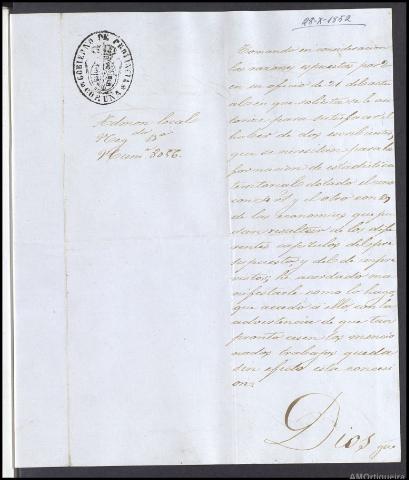 28-X-1852
GOBIERNO DE PROVINCIA
CORUÑA
Admon local
Neg.do 3.º
Num.º 2056.
Tomando en consideracion
las razones espuestas por V.
en su oficio de 21 del actu
al en que solicita se le au
torice para satisfacer el
haber de dos
que se necesitan para la
formacion de estadistica
territorial dotado el uno
con 8 rs y el otro con
de las economias que pue
dan resultar de los dife
rentes capitulos del pre
supuesto, y del de impre
vistos; he acordado ma
nifestarle como lo hago,
que accedo a ello, con la
advertencia de que tan
pronto cesen los mencio
nados trabajos queda
sin efecto esta conces
ion.
Dios gue
AMOrtigueira